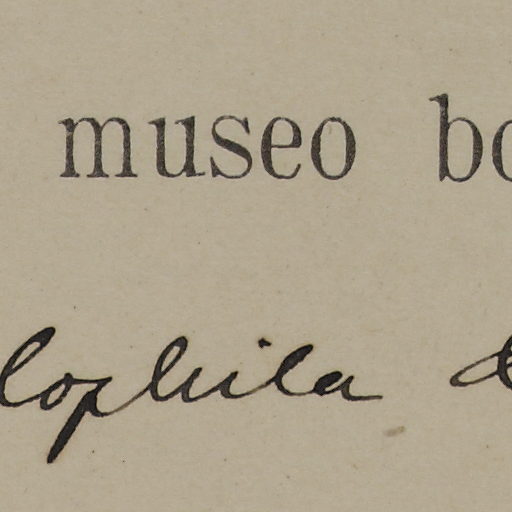 museo bo
lophila